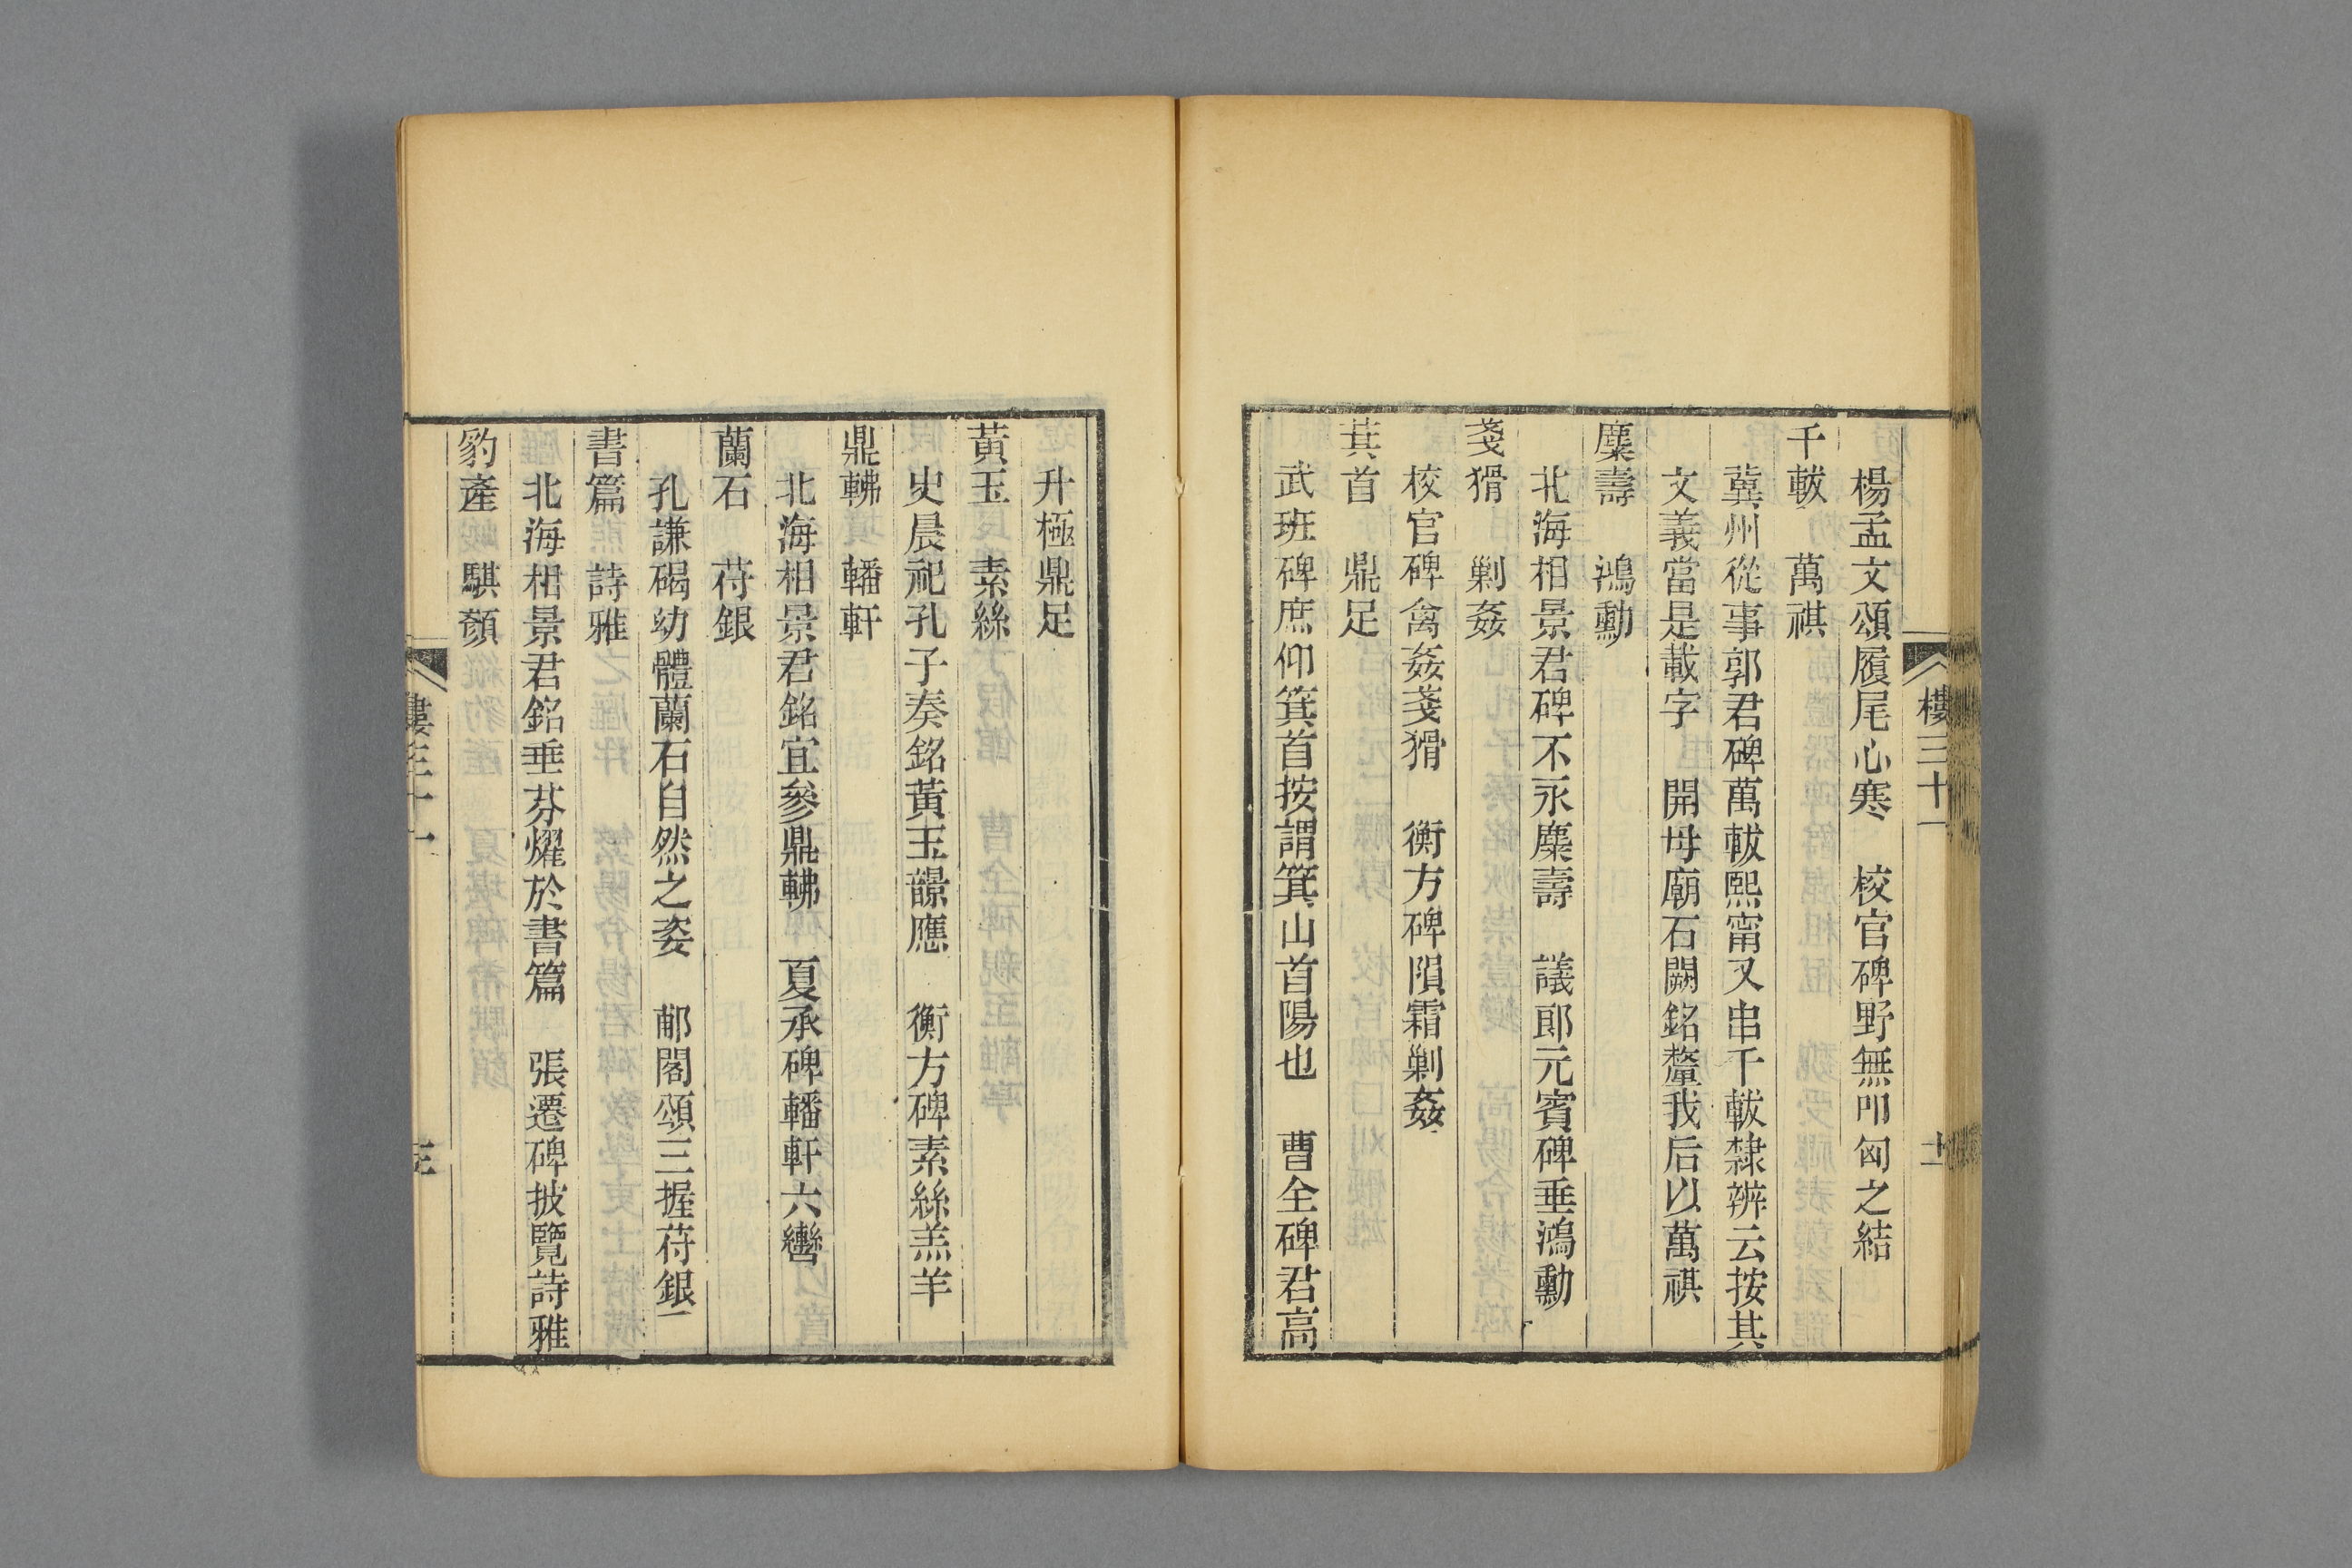 樓三十一　十二
楊孟文頌履尾心寒　校官碑野無叩匈之結
千載　萬祺
冀州從事郭君碑萬載熙甯又串千載隸辨云按其
文義當是載字　開母廟石闕銘釐我后以萬祺
麋壽　鴻勳
北海相景君碑不永麋壽　議郎元賓碑垂鴻勳
戔猾　剿姦
校官碑禽姦戔猾　衡方碑隕霜剿姦
萁首　鼎足
武班碑庶仰箕首按謂箕山首陽也　曹全碑君高
升極鼎足
黃玉　素絲
史晨祀孔子奏銘黃玉韻應　衡方碑素絲羔羊
鼎𫐌　轓軒
北海相景君銘宜參鼎𫐌　夏承碑轓軒六轡
蘭石　苻銀
孔謙碣幼體蘭石自然之姿　郙閣頌三握苻銀
書篇　詩雅
北海相景君銘垂芬燿於書篇　張遷碑披覽詩雅
豹產　騏
樓三十一